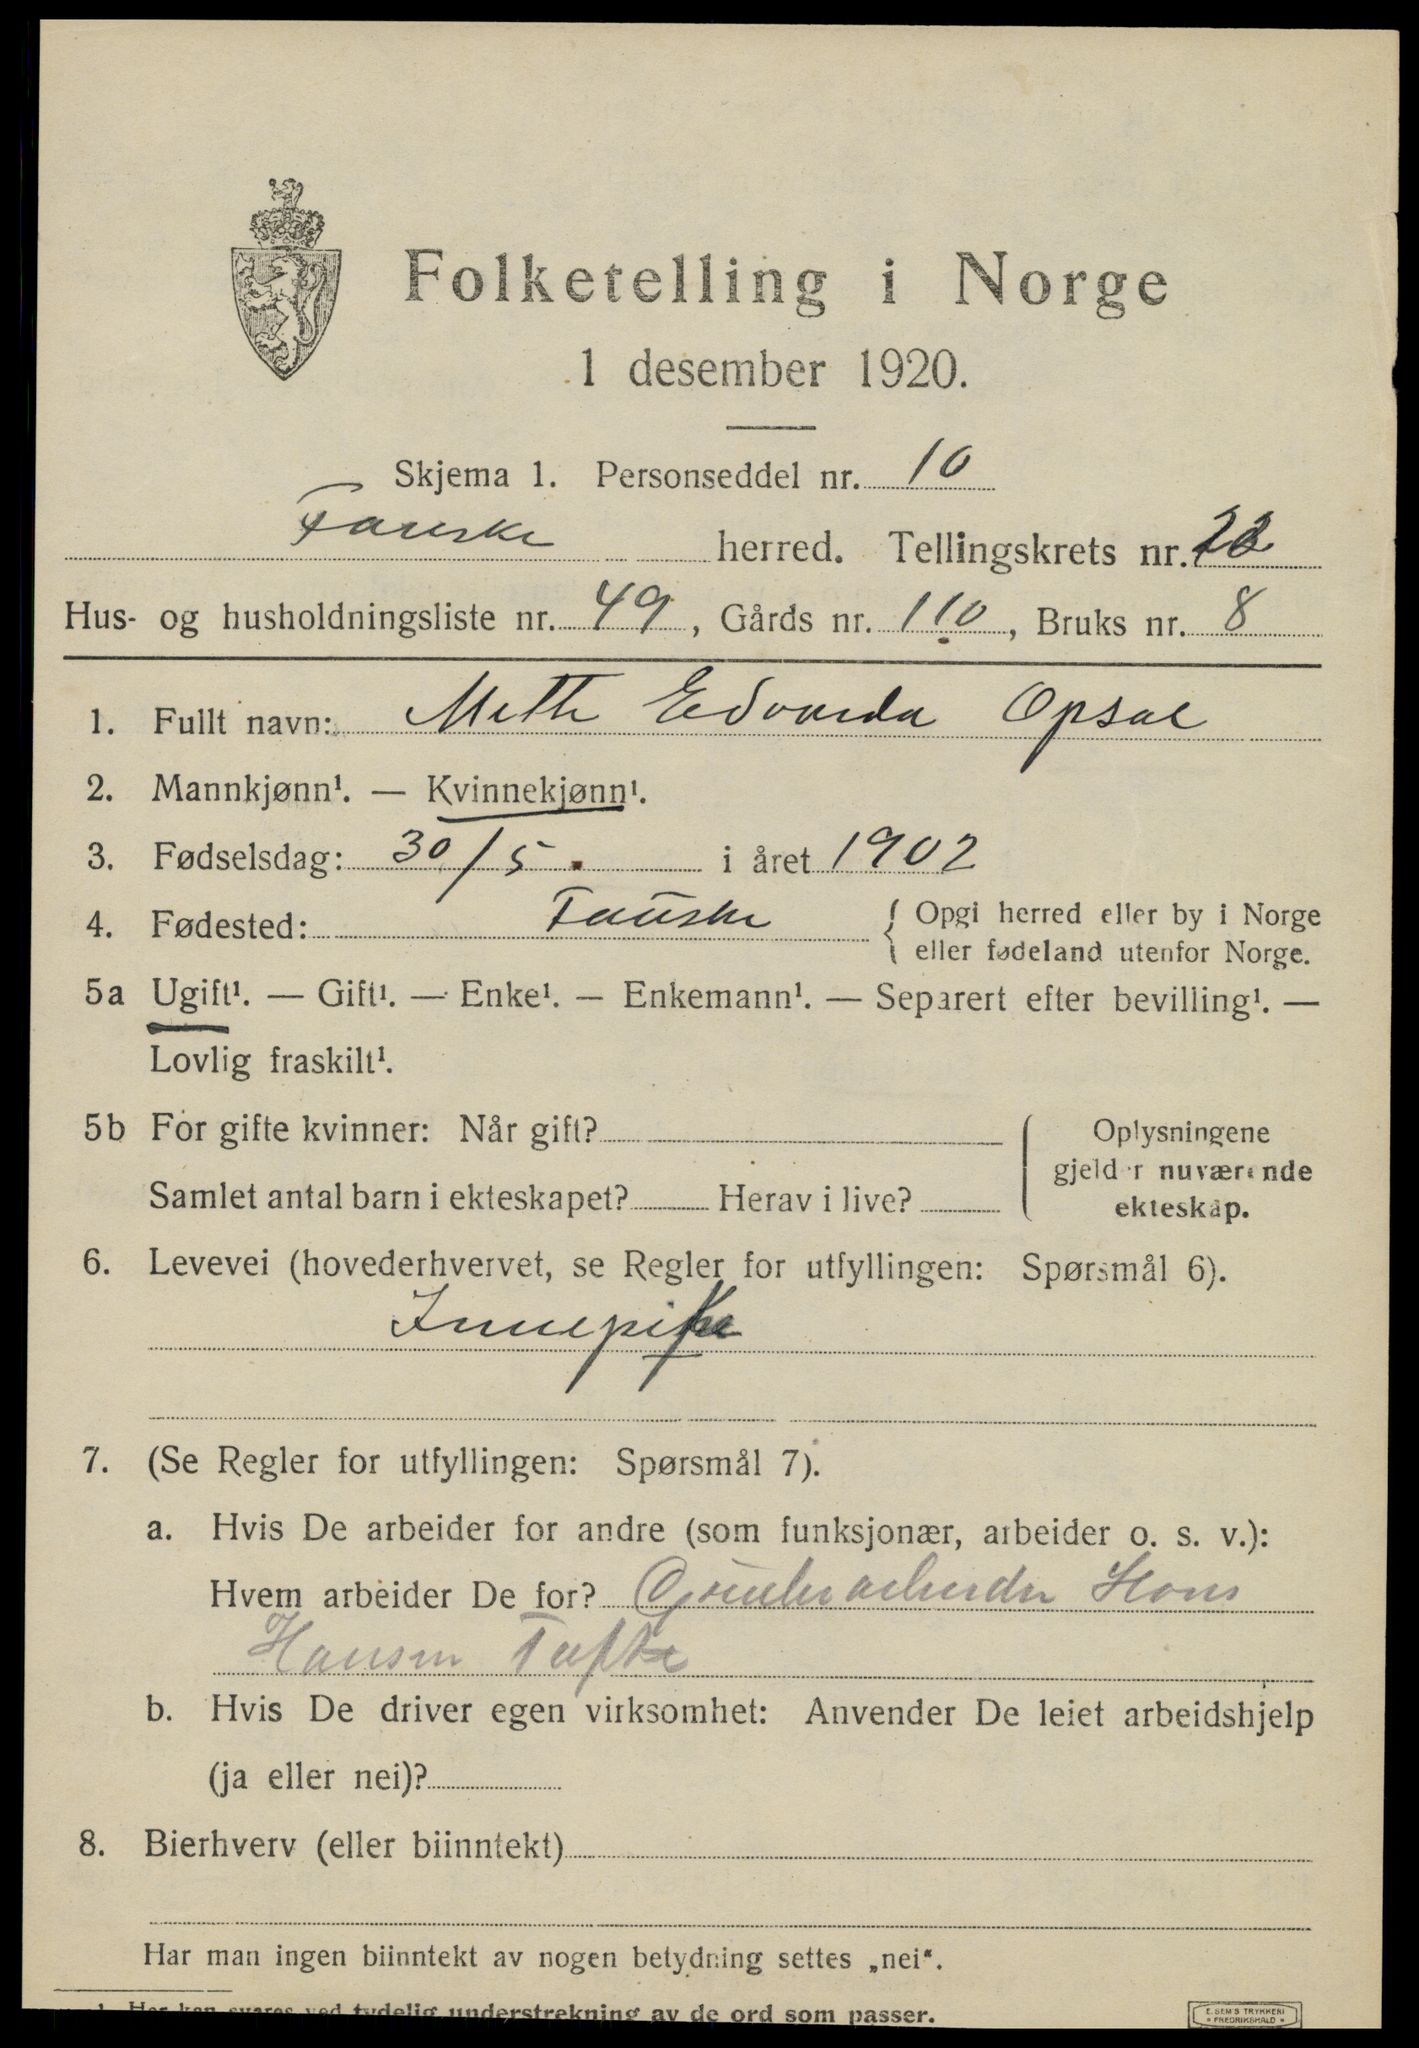 Folketelling i Norge
1 desember 1920.
Skjema 1. Personseddel nr. 10
Fauske herred. Tellingskrets nr. 22
Hus- og husholdningsliste nr. 49, Gårds nr. 110, Bruks nr. 8
1. Fullt navn: Mette Edvarda Opsal
2. Mannkjønn¹. — Kvinnekjønn¹.
3. Fødselsdag: 30/5. i året 1902
4. Fødested: Fauske { Opgi herred eller by i Norge
eller fødeland utenfor Norge.
5a Ugift¹. — Gift¹. — Enke¹. — Enkemann¹. — Separert efter bevilling¹. —
Lovlig fraskilt¹.
5b For gifte kvinner: Når gift?
Samlet antal barn i ekteskapet? Herav i live?
Oplysningene
gjelder nuværende
ekteskap.
6. Levevei (hovederhvervet, se Regler for utfyllingen: Spørsmål 6).
Innepike
7. (Se Regler for utfyllingen: Spørsmål 7).
a. Hvis De arbeider for andre (som funksjonær, arbeider o. s. v.):
Hvem arbeider De for? Grubearbeider Hans
Hansen Tufte
b. Hvis De driver egen virksomhet: Anvender De leiet arbeidshjelp
(ja eller nei)?
8. Bierhverv (eller biinntekt)
Har man ingen biinntekt av nogen betydning settes „nei“.
1. Her kan svares ved tydelig understrekning av de ord som passer.
E. SEM'S TRYKKERI
• FREDRIKSHALD •